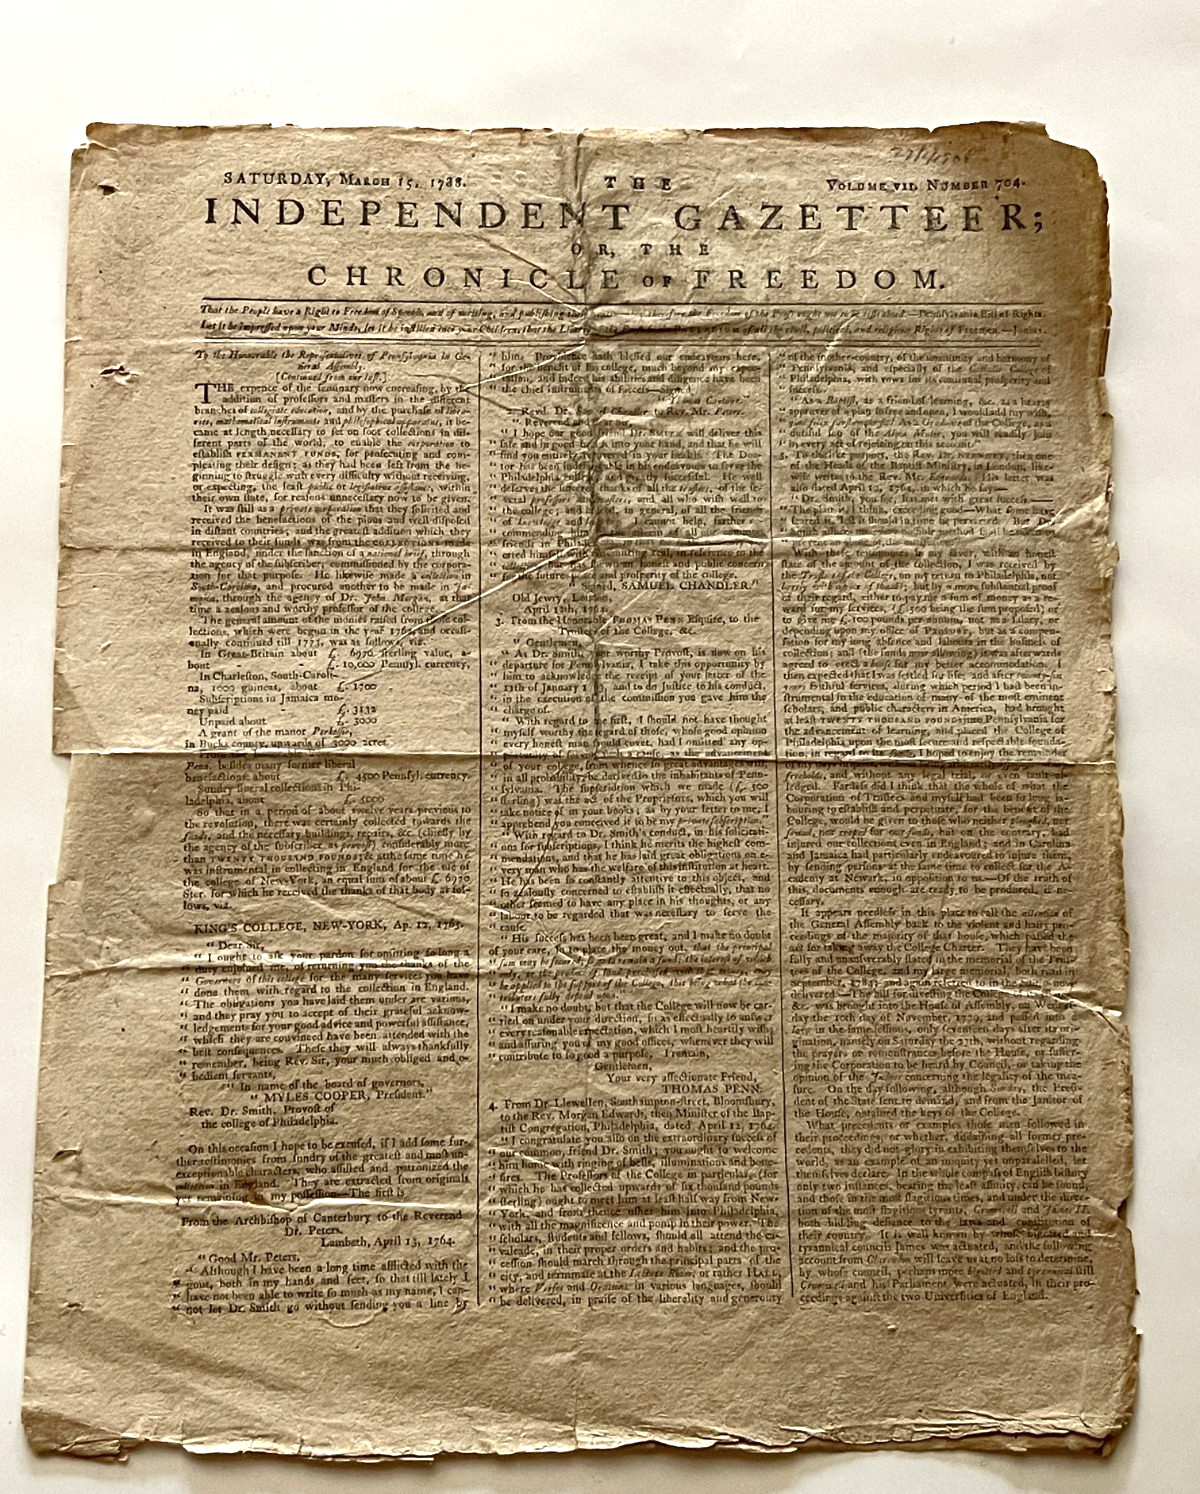 SATURDAY, MARCH 15, 1788.
THE
VOLUME VII. NUMBER 704.
INDEPENDENT GAZETTEER;
OR, THE
CHRONICLE OF FREEDOM.
That the People have a Right to Freedom of Speech, and of writing, and publiſhing their therefore the Freedom of the Preſs ought not to be reſtrained.—Pennſylvania Bill of Rights.
Let it be impreſſed upon your Minds, let it be inſtilled into your Children, that the Liberty of all the civil, political, and religious Rights of Freemen.—Junius.
To the Honourable the Repreſentatives of Pennſylvania in Ge-
neral Aſſembly.
[Continued from our laſt.]
THE expence of the ſeminary now encreaſing, by the
addition of profeſſors and maſters in the different
branches of collegiate education, and by the purchaſe of libra-
ries, mathematical inſtruments and philoſophical apparatus, it be-
came at length neceſſary to ſet on foot collections in dif-
ferent parts of the world, to enable the corporation to
eſtabliſh PERMANENT FUNDS, for proſecuting and com-
pleating their deſign; as they had been left from the be-
ginning to ſtruggle with every difficulty without receiving,
or expecting, the leaſt public or legiſlative aſſiſtance, within
their own ſtate, for reaſons unneceſſary now to be given.
It was ſtill as a private corporation that they ſolicited and
received the benefactions of the pious and well diſpoſed
in diſtant countries; and the greateſt addition which they
received to their funds was from the COLLECTIONS made
in England, under the ſanction of a national brief, through
the agency of the ſubſcriber, commiſſioned by the corpora-
tion for that purpoſe. He likewiſe made a collection in
South-Carolina, and procured another to be made in Ja-
maica, through the agency of Dr. John Morgan, at that
time a zealous and worthy profeſſor of the college.
The general amount of the monies raiſed from theſe col-
lections, which were begun in the year 1762, and occaſi-
onally continued till 1775, was as follows, viz.
In Great-Britain about £. 6970 ſterling value, a-
bout - £. 10,000 Pennſyl. currency,
In Charleſton, South-Caroli-
na, 1000 guineas, about £. 1700
Subſcriptions in Jamaica mo-
ney paid £. 3132
Unpaid about £. 3000
A grant of the manor Perkaſie,
in Bucks county, upwards of 3000 acres
Penn, beſides many former liberal
benefactions, about £. 4500 Pennſyl. currency.
Sundry liberal collections in Phi-
ladelphia, about £. 5000
So that in a period of about twelve years previous to
the revolution, there was certainly collected towards the
funds, and the neceſſary buildings, repairs, &c. (chiefly by
the agency of the ſubſcriber as provoſt) conſiderably more
than TWENTY THOUSAND POUNDS; & at the ſame time he
was inſtrumental in collecting in England for the uſe of
the college of New-York, an equal ſum of about £. 6970
Ster. for which he received the thanks of that body as fol-
lows, viz.
KING'S COLLEGE, NEW-YORK, Ap. 12, 1765.
“ Dear Sir,
“ I ought to aſk your pardon for omitting ſo long a
“ duty enjoined me, of returning you the thanks of the
“ Governors of this college for the many ſervices you have
“ done them with regard to the collection in England.
“ The obligations you have laid them under are various,
“ and they pray you to accept of their grateful acknow-
“ ledgements for your good advice and powerful aſſiſtance,
“ which they are convinced have been attended with the
“ beſt conſequences. Theſe they will always thankfully
“ remember, being Rev. Sir, your much obliged and o-
“ bedient ſervants,
“ In name of the board of governors,
“ MYLES COOPER, Preſident.”
Rev. Dr. Smith, Provoſt of
the college of Philadelphia.
On this occaſion I hope to be excuſed, if I add ſome fur-
ther teſtimonies from ſundry of the greateſt and moſt un-
exceptionable characters, who aſſiſted and patronized the
collection in England. They are extracted from originals
yet remaining in my poſſeſſion—The firſt is
From the Archbiſhop of Canterbury to the Reverend
Dr. Peters.
Lambeth, April 13, 1764.
“ Good Mr. Peters,
“ Although I have been a long time afflicted with the
“ gout, both in my hands, and feet, ſo that till lately I
“ have not been able to write ſo much as my name, I can-
“ not let Dr. Smith go without ſending you a line by
“ him. Providence hath bleſſed our endeavours here,
“ for the benefit of his college, much beyond my expec-
“ tation, and indeed his abilities and diligence have been
“ the chief inſtruments of ſucceſs—Signed,
“ Thomas Cantuar.”
2. Revd. Dr. Chandler to Rev. Mr. Peters.
“ Reverend and dear Sir,
“ I hope our good friend Dr. SMITH will deliver this
“ ſafe and in good into your hand, and that he will
“ find you entirely recovered in your health. The Doc-
“ tor has been indefatigable in his endeavors to ſerve the
“ Philadelphia college and greatly ſucceſsful. He well
“ deſerves the ſincere thanks of all the truſtees, of the ſe-
“ veral profeſſors and maſters, and all who wiſh well to
“ the college; and indeed, in general, of all the friends
“ of knowledge and I cannot help, farther
“ commending him to the eſteem of all our common
“ friends in Philadelphia
“ erted himſelf with unremitting zeal, in reference to the
“ collection, but has ſhewn an honeſt and public concern
“ for the future peace and proſperity of the college.
“ Signed, SAMUEL CHANDLER.”
Old Jewry, London,
April 12th, 1764.
3. From the Honorable THOMAS PENN Eſquire, to the
Truſtees of the College, &c.
“ Gentlemen,
“ As Dr. Smith, your worthy Provoſt, is now on his
“ departure for Pennſylvania, I take this opportunity by
“ him to acknowledge the receipt of your letter of the
“ 13th of January and to do Juſtice to his conduct,
“ in the execution of the commiſſion you gave him the
“ charge of.
“ With regard to the firſt, I ſhould not have thought
“ myſelf worthy the regard of thoſe, whoſe good opinion
“ every honeſt man ſhould covet, had I omitted any op-
“ portunity of ſerving ſuch a cauſe, as the advancement
“ of your college, from whence ſo great advantages will,
“ in all probability be derived to the inhabitants of Penn-
“ ſylvania. The ſubſcription which we made (£. 500
“ ſterling) was the act of the Proprietors, which you will
“ take notice of in your books; as by your letter to me, I
“ apprehend you conceived it to be my private ſubſcription.”
“ With regard to Dr. Smith's conduct, in his ſolicitati-
“ ons for ſubſcriptions, I think he merits the higheſt com-
“ mendations, and that he has laid great obligations on e-
“ very man who has the welfare of this inſtitution at heart.
“ He has been ſo conſtantly attentive to this object, and
“ ſo zealouſly concerned to eſtabliſh it effectually, that no
“ other ſeemed to have any place in his thoughts, or any
“ labour to be regarded that was neceſſary to ſerve the
“ cauſe.
“ His ſucceſs has been great, and I make no doubt
“ of your care, ſo to place the money out, that the principal
“ ſum may be ſecured, ſo as to remain a fund; the intereſt of which
“ only, or the produce of land purchaſed with this money, may
“ be applied to the ſupport of the College, this being what the
“ fully depend upon.
“ I make no doubt, but that the College will now be car-
“ ried on under your direction, ſo as effectually to anſwer
“ every reaſonable expectation, which I moſt heartily wiſh;
“ and aſſuring you of my good offices, whenever they will
“ contribute to ſo good a purpoſe, I remain,
Gentlemen,
Your very affectionate Friend,
THOMAS PENN.
4. From Dr. Llewellen, Southampton-ſtreet, Bloomſbury,
to the Rev. Morgan Edwards, then Miniſter of the Bap-
tiſt Congregation, Philadelphia, dated April 12, 1764.
“ I congratulate you alſo on the extraordinary ſucceſs of
“ our common, friend Dr. Smith; you ought to welcome
“ him home with ringing of bells, illuminations and bone-
“ fires. The Profeſſors of the College in particular, (for
“ which he has collected upwards of ſix thouſand pounds
“ ſterling) ought to meet him at leaſt half way from New-
“ York, and from thence uſher him into Philadelphia,
“ with all the magnificence and pomp in their power. The
“ ſcholars, ſtudents and fellows, ſhould all attend the ca-
“ valcade, in their proper orders and habits; and the pro-
“ ceſſion ſhould march through the principal parts of the
“ city, and terminate at the Lecture Room; or rather HALL,
“ where Verſes and Orations in various languages, ſhould
“ be delivered, in praiſe of the liberality and generoſity
“ of the mother-country, of the unanimity and harmony of
“ Pennſylvania, and eſpecially of the Catholic College of
“ Philadelphia, with vows for its continual proſperity and
“ ſucceſs.
“ As a Baptiſt, as a friend of learning, &c. as a hearty
“ approver of a plan ſo free and open, I would add my wiſh,
“ As a Graduate of the College, as a
“ dutiful ſon of the Alma Mater, you will readily join
“ in every act of rejoicing on this account.”
5. To the like purport, the Rev. Dr. STENNETT, then one
of the Heads of the Baptiſt Miniſtry, in London, like-
wiſe writes to the Rev. Mr. Edwards. His letter was
alſo dated April 12, 1764, in which he ſays—
“ Dr. Smith, you ſee, has met with great ſucceſs.—
“ The plan is I think, exceeding good—What ſome have
“ feared is, leſt it ſhould in time be perverted. But Dr.
With theſe teſtimonies in my favor, with an honeſt
ſtate of the amount of the collection, I was received by
the Truſtees of the College, on my return to Philadelphia, not
barely with votes of thanks; but by a more ſubſtantial proof
of their regard, either to pay me a ſum of money as a re-
ward for my ſervices, (£.500 being the ſum propoſed) or
to give me £.100 pounds per annum, not as a ſalary, or
depending upon my office of PROVOST, but as a compen-
ſation for my long abſence and labours in the buſineſs of
collection; and (the funds now allowing) it was afterwards
agreed to erect a houſe for my better accommodation. I
then expected that I was ſettled for life; and after twenty-ſix
years faithful ſervices, during which period I had been in-
ſtrumental in the education of many of the moſt eminent
ſcholars, and public characters in America, had brought
at leaſt TWENTY THOUSAND POUNDS into Pennſylvania for
the advancement of learning, and placed the College of
Philadelphia upon the moſt ſecure and reſpectable founda-
tion, in regard to its funds, I hoped to enjoy the remainder
of my days
freeholds, and without any legal trial, or even fault al-
ledged. Far leſs did I think that the whole of what the
Corporation of Truſtees and myſelf had been ſo long la-
bouring to eſtabliſh and perpetuate, for the benefit of the
College, would be given to thoſe who neither ploughed, nor
ſowed, nor reaped for our funds, but on the contrary, had
injured our collections even in England; and in Carolina
and Jamaica had particularly endeavoured to injure them,
by ſending perſons at the ſame time to collect for the A-
cademy at Newark, in oppoſition to us—Of the truth of
this, documents enough are ready to be produced, if ne-
ceſſary.
It appears needleſs in this place to call the attention of
the General Aſſembly back to the violent and haſty pro-
ceedings of the majority of that houſe, which paſſed the
act for taking away the College Charter. They have been
fully and unanſwerably ſtated in the memorial of the Truſ-
tees of the College, and my large memorial, both read in
September, 1785; and again referred to in the now
delivered—The bill for diveſting the College Truſtees
&c. was brought into the Houſe of Aſſembly, on Wedneſ-
day the 10th day of November, 1779, and paſſed into a
law in the ſame ſeſſions, only ſeventeen days after its ori-
gination, namely on Saturday the 27th, without regarding
the prayers or remonſtrances before the Houſe, or ſuffer-
ing the Corporation to be heard by Council, or taking the
opinion of the Judges concerning the legality of the mea-
ſure. On the day following, although Sunday, the Preſi-
dent of the State ſent to demand, and from the Janitor of
the Houſe, obtained the keys of the College.
What precedents or examples thoſe men followed in
their proceedings, or whether, diſdaining all former pre-
cedents, they did not glory in exhibiting themſelves to the
world, as an example of an iniquity yet unparalleled, let
themſelves declare. In the whole compaſs of Engliſh hiſtory
only two inſtances, bearing the leaſt affinity, can be found,
and thoſe in the moſt flagitious times, and under the direc-
tion of the moſt flagitious tyrants, Cromwell and James II.
both bidding defiance to the laws and conſtitution of
their country. It is well known by whoſe bigoted and
tyrannical councils James was actuated, and the following
account from Clarendon will leave us at no loſs to determine,
by whoſe council, perhaps more bigoted and tyrannical ſtill
Cromwell and his Parliament were actuated, in their pro-
ceedings againſt the two Univerſities of England.